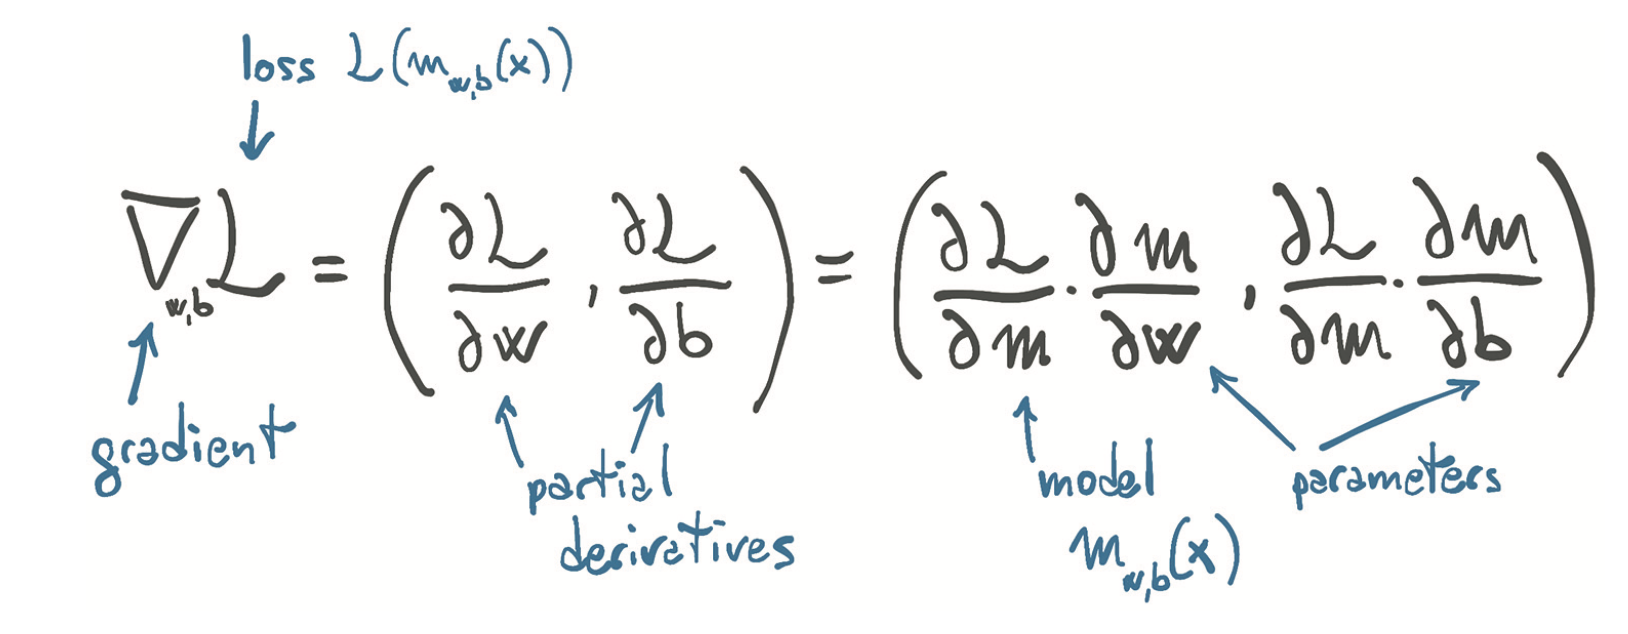 loss L(m_{w,b}(x))
∇_{w,b} L = (∂L/∂w, ∂L/∂b) = (∂L/∂m · ∂m/∂w, ∂L/∂m · ∂m/∂b)
gradient
partial
derivatives
model
m_{w,b}(x)
parameters